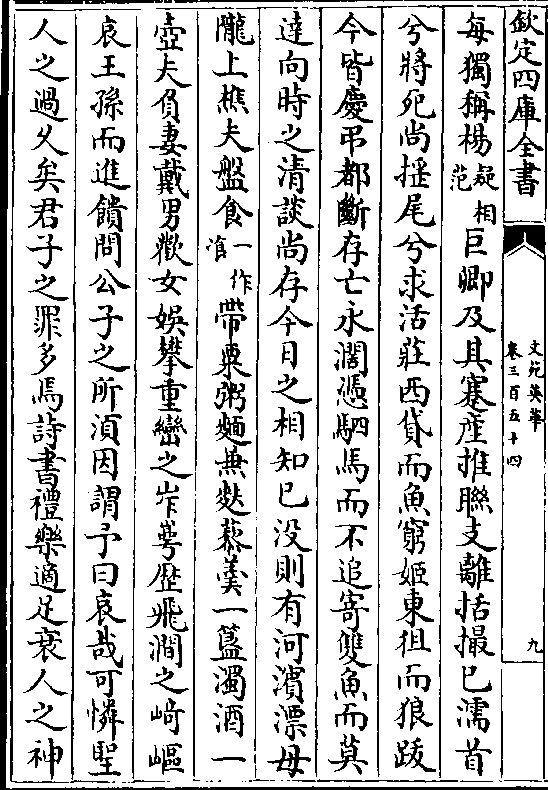 欽定四庫全書
文苑英華
卷三百五十四
九
每獨稱楊疑范相巨卿及其蹇産推聯支離括撮已濡首
兮將死尚揺尾兮求活莊西貸而魚窮姬東徂而狼跋
今皆慶弔都斷存亡永濶憑駟馬而不追寄雙魚而莫
達向時之清談尚存今日之相知已没則有河濵漂母
隴上樵夫盤食一作飡帶粟粥麵兼麩藜羹一簋濁酒一
壺夫負妻戴男歡女娯攀重巒之岝㟧歴飛澗之﨑嶇
哀王孫而進饋問公子之所湏因謂予曰哀哉可憐聖
人之過久矣君子之罪多焉詩書禮樂適足衰人之神